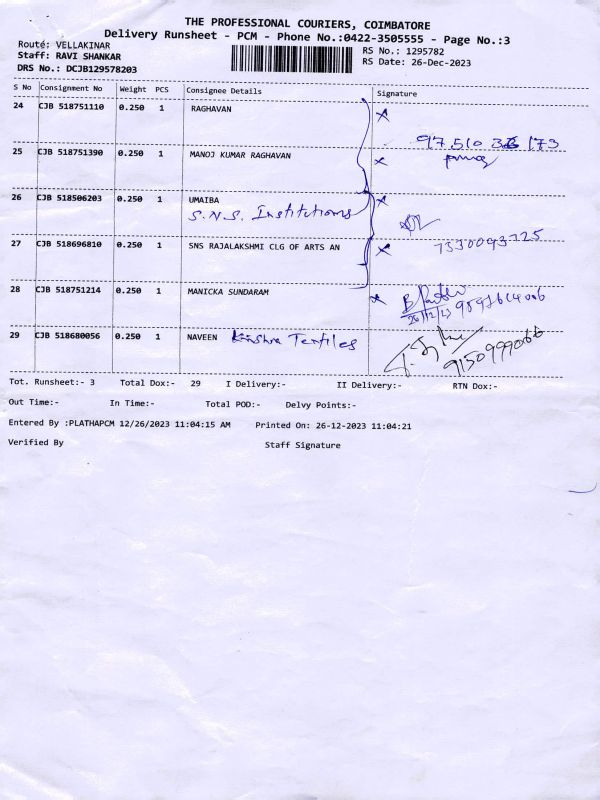 THE PROFESSIONAL COURIERS, COIMBATORE
Delivery Runsheet - PCM - Phone No.:0422-3505555 - Page No.:3
Route: VELLAKINAR
RS No.: 1295782
Staff: RAVI SHANKAR
RS Date: 26-Dec-2023
DRS No.: DCJB129578203
S No Consignment No Weight PCS Consignee Details Signature
24 CJB 518751110 0.250 1 RAGHAVAN
25 CJB 518751390 0.250 1 MANOJ KUMAR RAGHAVAN
26 CJB 518506203 0.250 1 UMAIBA
S.N.S. Institutions
27 CJB 518696810 0.250 1 SNS RAJALAKSHMI CLG OF ARTS AN
7330093725
28 CJB 518751214 0.250 1 MANICKA SUNDARAM
26/12/23
29 CJB 518680056 0.250 1 NAVEEN
9150999066
Tot. Runsheet:- 3 Total Dox:- 29 I Delivery:- II Delivery:- RTN Dox:-
Out Time:- In Time:- Total POD:- Delvy Points:-
Entered By :PLATHAPCM 12/26/2023 11:04:15 AM Printed On: 26-12-2023 11:04:21
Verified By Staff Signature